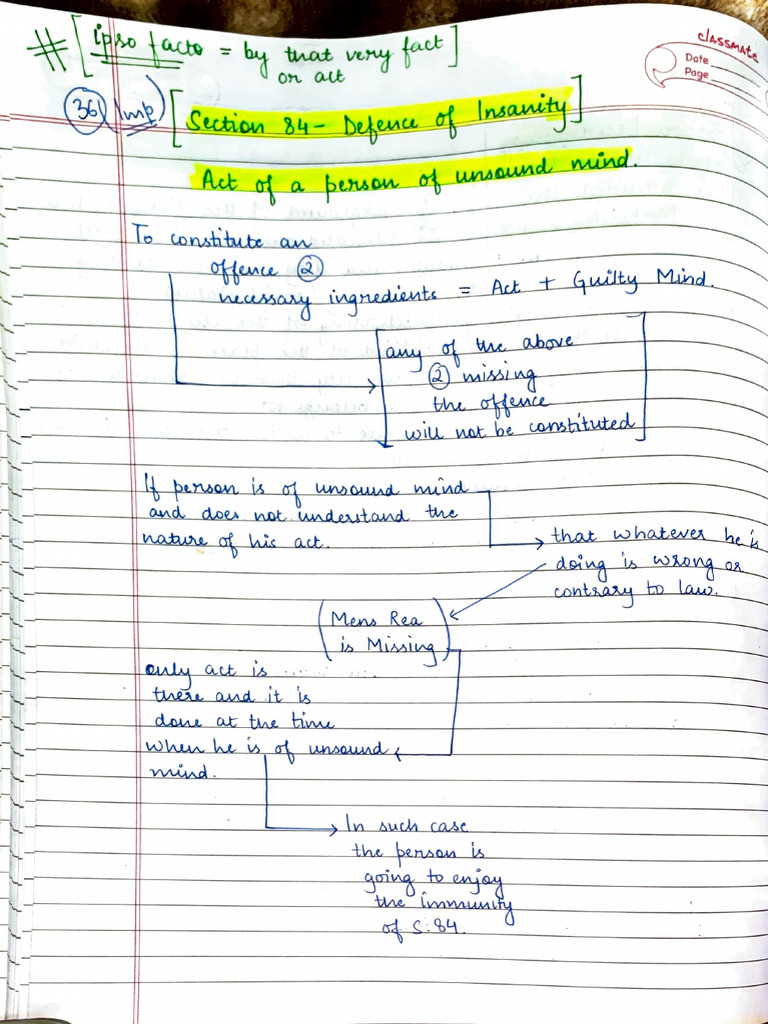 # [ipso facto = by that very fact]
or act
classmate
Date
Page
(36) (Imp) [Section 84 - Defence of Insanity]
Act of a person of unsound mind.
To constitute an
offence ②
necessary ingredients = Act + Guilty Mind.
[any of the above
② missing
the offence
will not be constituted]
If person is of unsound mind
and does not understand the
nature of his act.
that whatever he is
doing is wrong or
contrary to law.
(Mens Rea
is Missing)
only act is
there and it is
done at the time
when he is of unsound
mind.
In such case
the person is
going to enjoy
the immunity
of S.84.